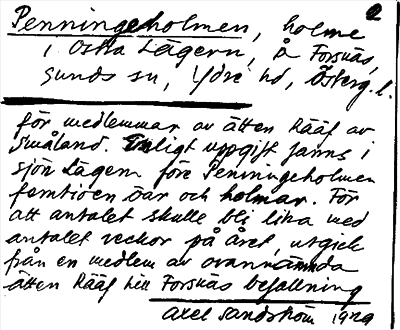 Penningeholmen, holme 2
i Östra Lägern, å Forsnäs,
Sunds sn, Ydre hd, Österg. l.
för medlemmar av ätten Rääf av
Småland. Enligt uppgift fanns i
sjön Lägern före Penningeholmen
femtioen öar och holmar. För
att antalet skulle bli lika med
antalet veckor på året, utgick
från en medlem av ovannämnda
ätten Rääf till Forsnäs befallning
Axel Sandström 1929